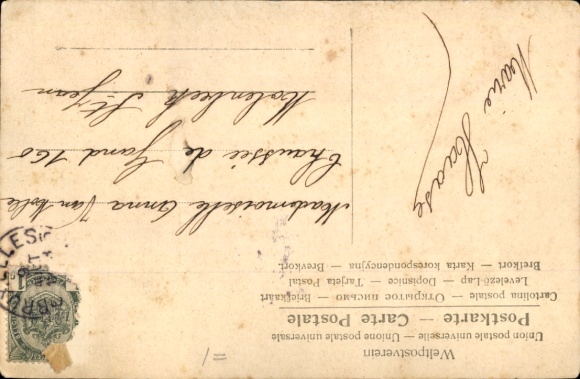 Weltpostverein
Union postale universelle — Unione postale universale
Postkarte — Carte Postale
Cartolina postale — Открытое письмо — Briefkaart
Levelező-Lap — Dopisnice — Tarjeta Postal
Brefkort — Karta korespondencyjna — Brevkort
Mademoiselle Anna Van
Chaussée de Gand 160
Molenbeek St. Jean
Marie Haase
1/=